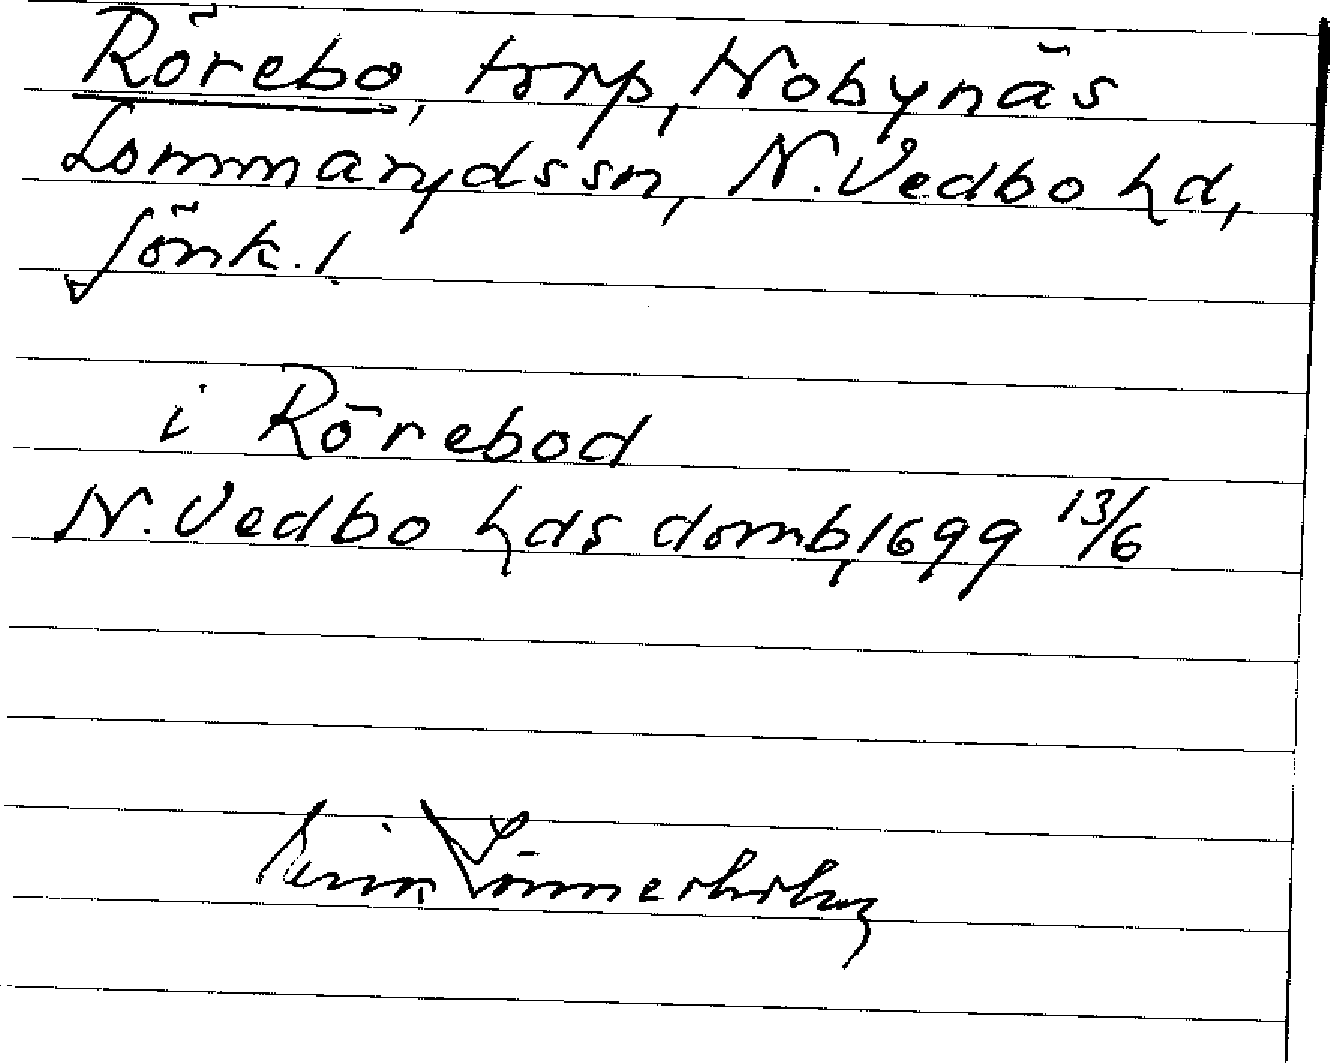 Rörebo, torp, Nobynäs
Lommarydssn, N. Vedbo hd,
Jönk. l.
i Rörebod
N. Vedbo hds domb, 1699 13/6